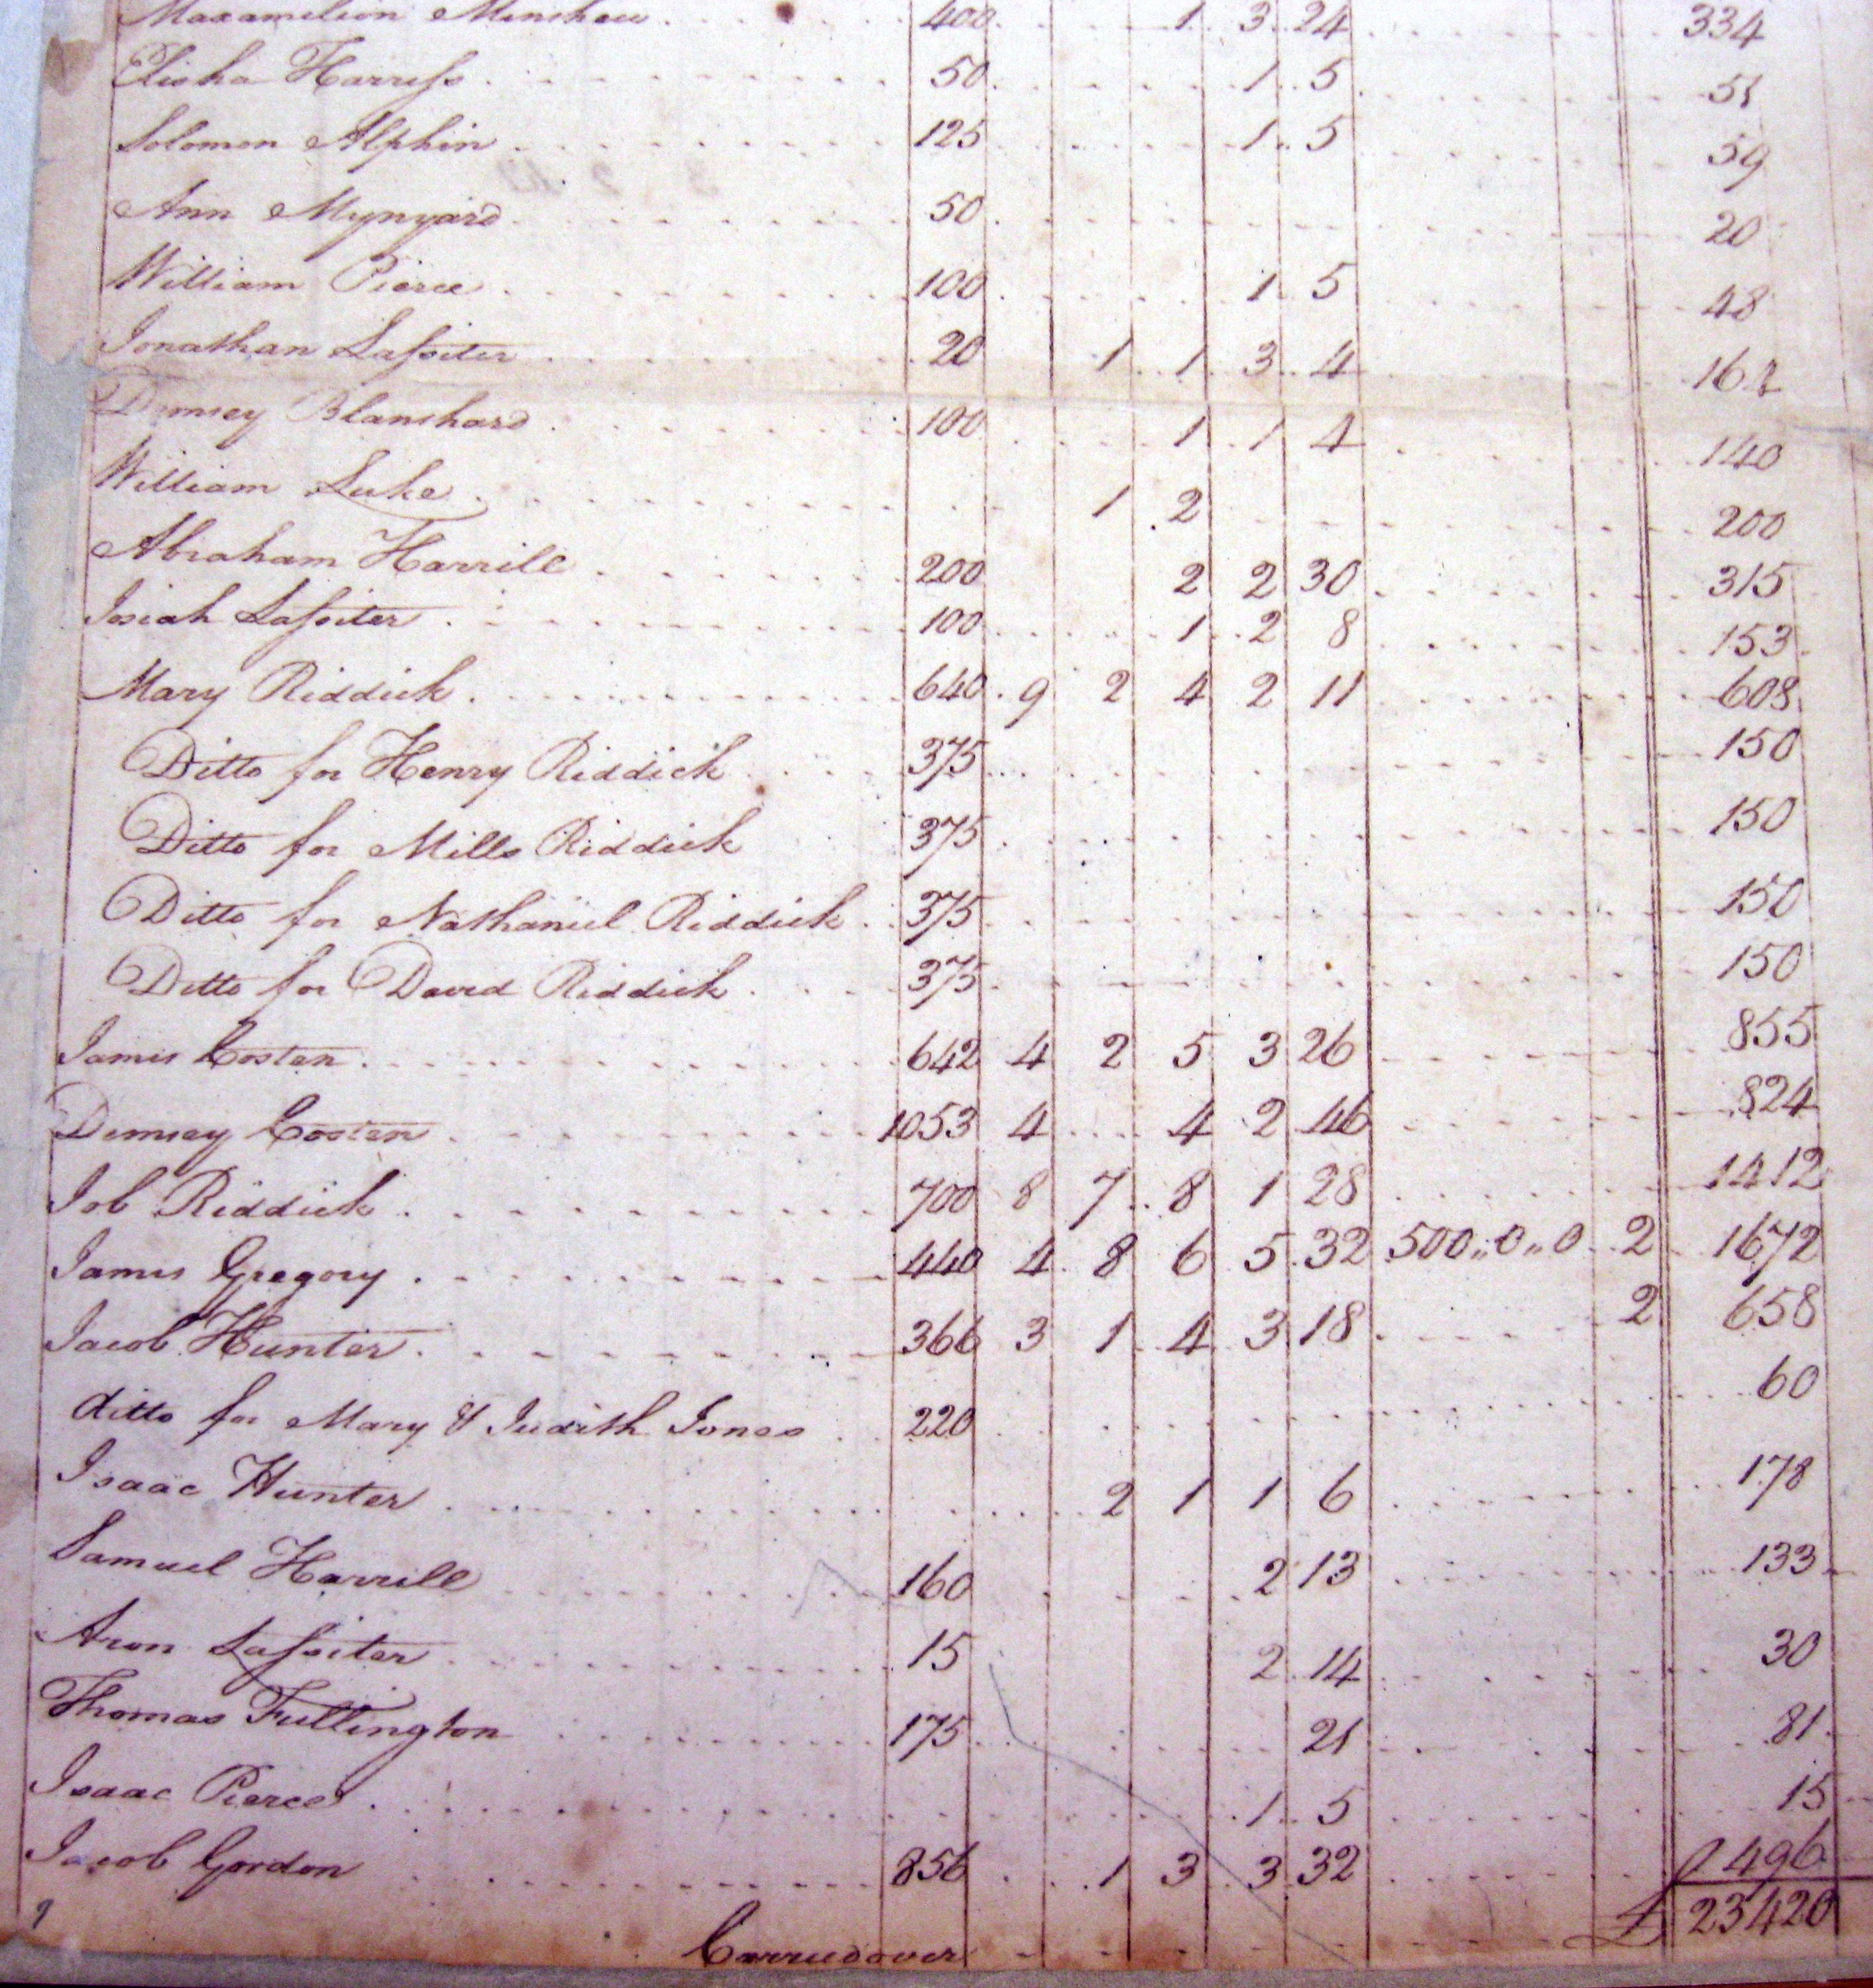 Maxamilion Minshew 400 1 3 24 334
Elisha Harriss 50 1 5 51
Solomon Alphin 125 1 5 59
Ann Mynyard 50 20
William Pierce 100 1 5 48
Jonathan Lassiter 20 1 1 3 4 162
Demsey Blanshard 100 1 1 4 140
William Luke 1 2 200
Abraham Harrill 200 2 2 30 315
Josiah Lassiter 100 1 2 8 153
Mary Riddick 640 9 2 4 2 11 608
Ditto for Henry Riddick 375 150
Ditto for Mills Riddick 375 150
Ditto for Nathaniel Riddick 375 150
Ditto for David Riddick 375 150
James Costen 642 4 2 5 3 26 855
Demsey Costen 1053 4 4 2 46 824
Job Riddick 700 8 7 8 1 28 1412
James Gregory 440 4 8 6 5 32 500,,0,,0 2 1672
Jacob Hunter 366 3 1 4 3 18 2 658
ditto for Mary & Judith Jones 220 60
Isaac Hunter 2 1 1 6 178
Samuel Harrill 160 2 13 133
Aron Lassiter 15 2 14 30
Thomas Fullington 175 21 81
Isaac Pierce 1 5 15
Jacob Gordon 856 1 3 3 32 496
Carried over £ 23420